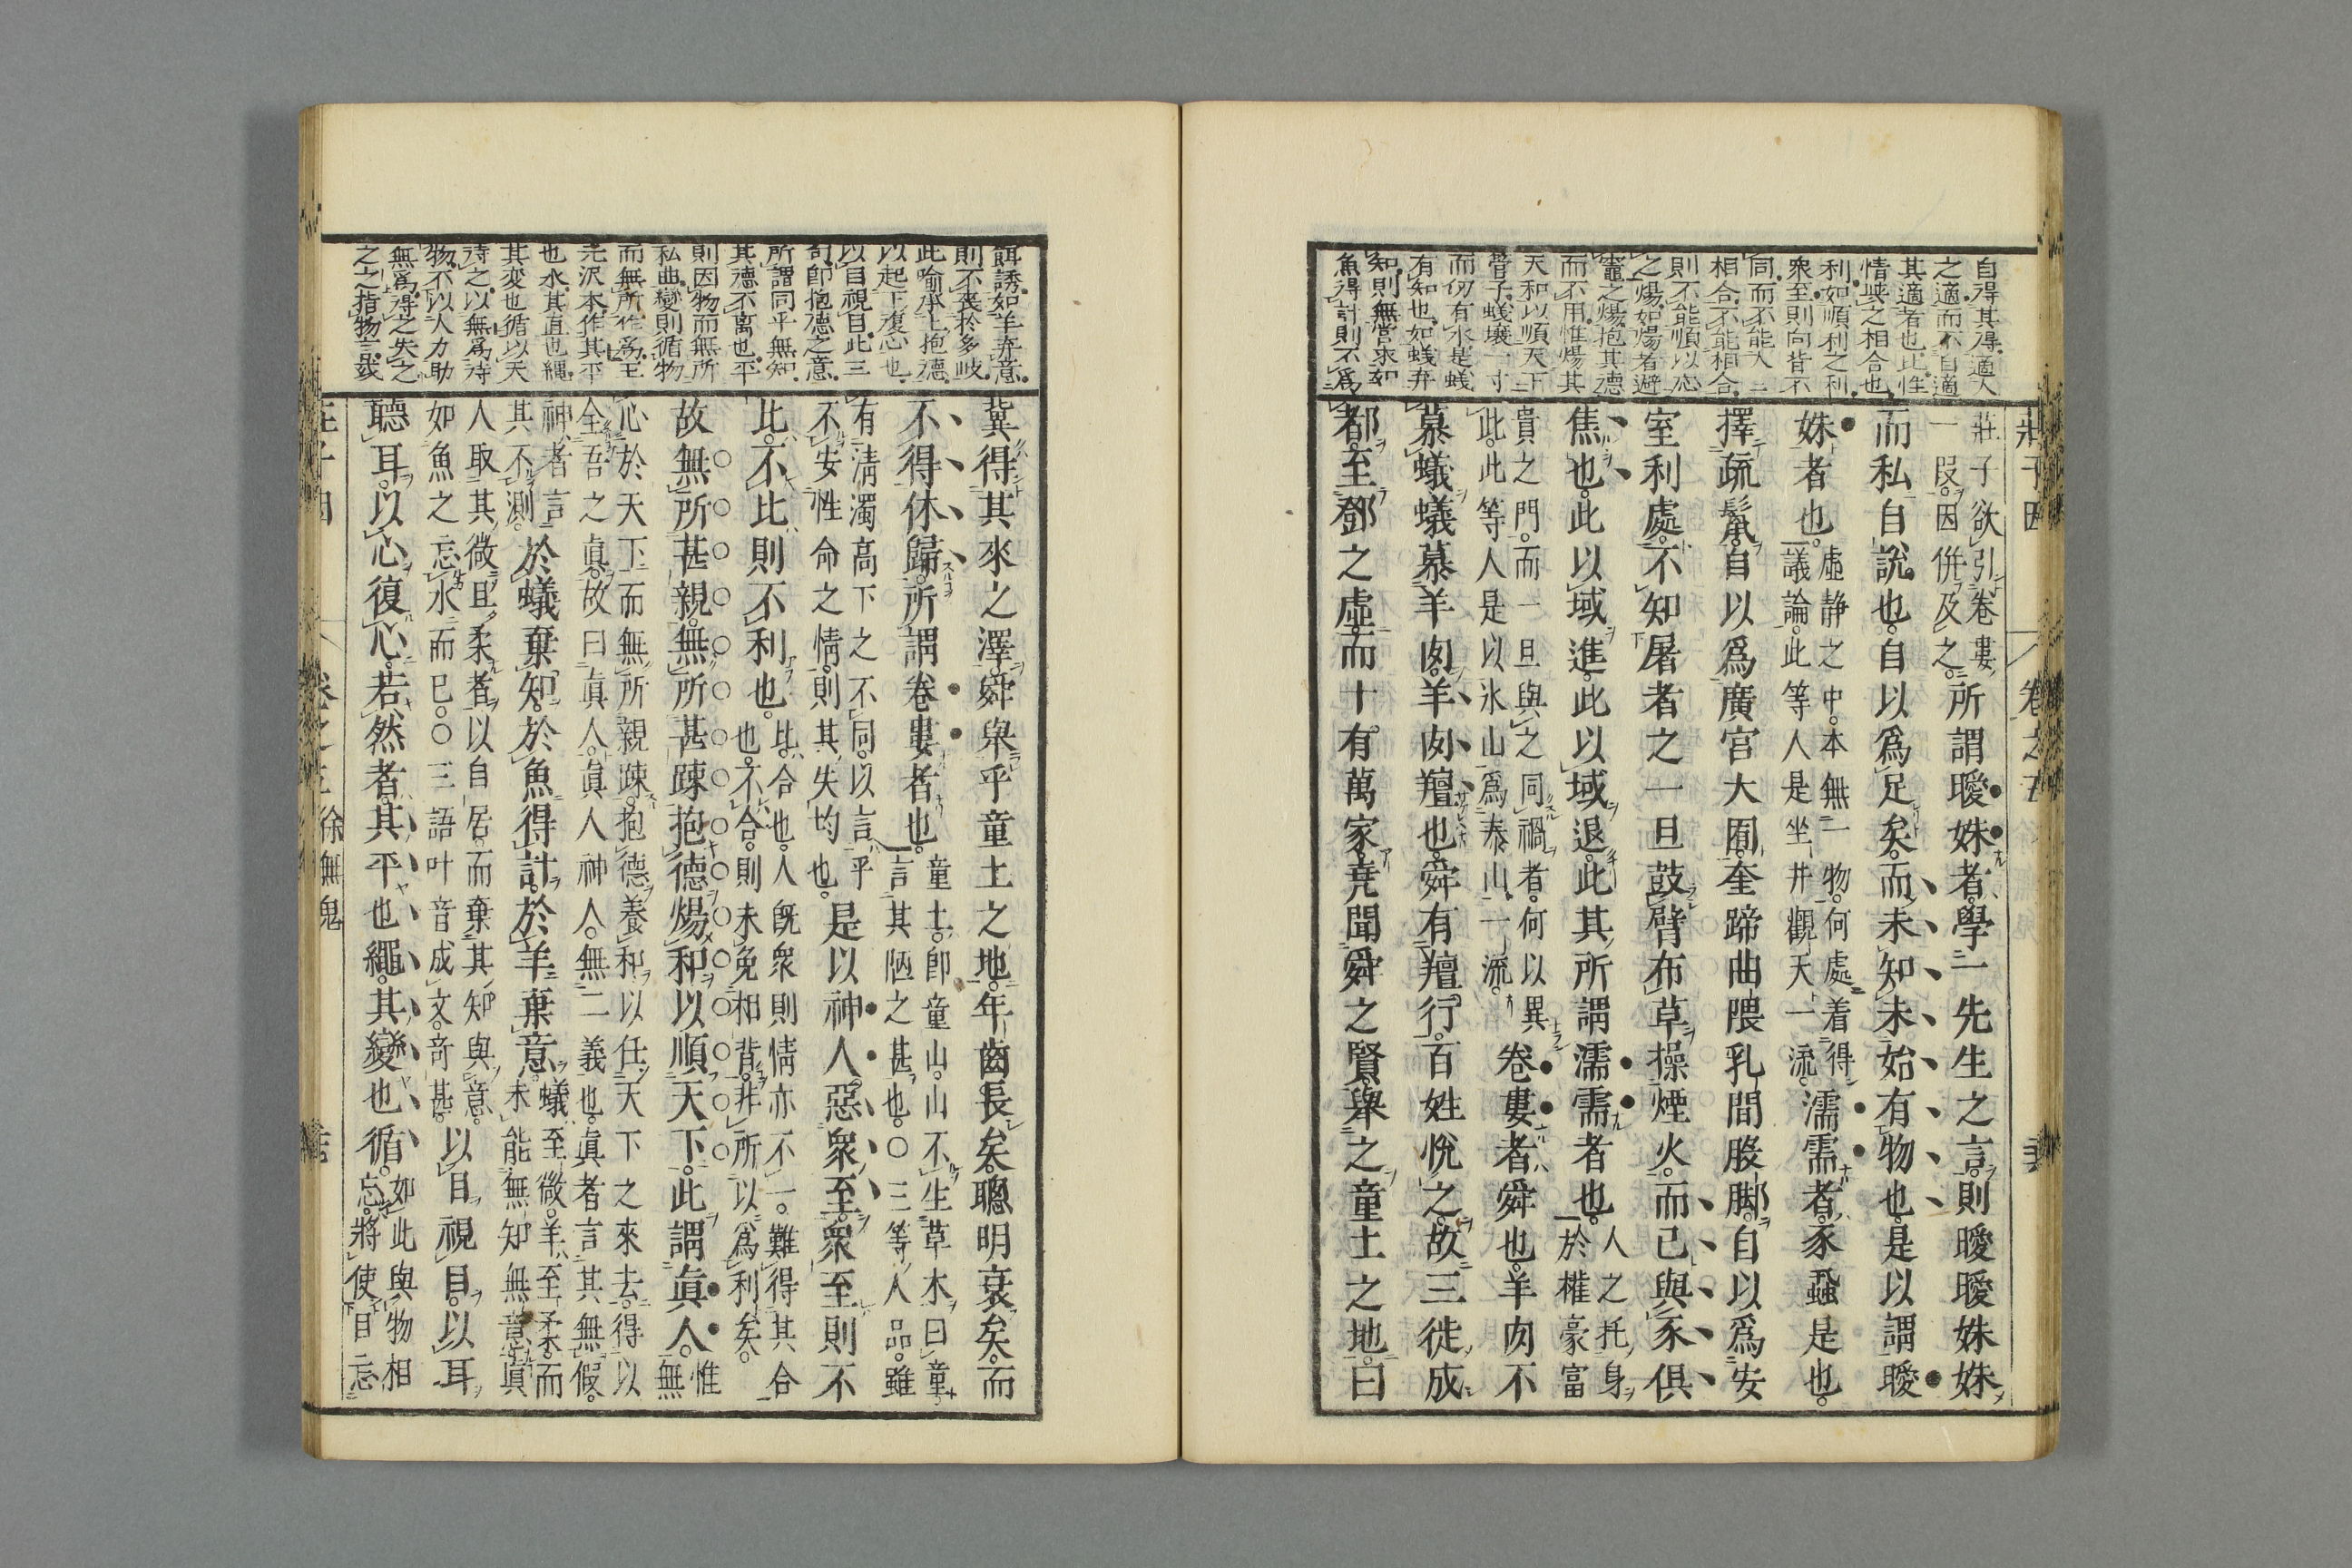 自得其得適人
之適而不自適
其適者也比性
情娛之相合也
利如順利之利
衆至則向背不
同而不能人三
相合不能相合
則不能順以恋
之煬如煬者避
竈之煬抱其德
而不用惟煬其
天和以順天下
管子蟻壤一寸
而仞有水是蟻
有知也如蟻弃
知則無營求如
魚得計則不爲
莊子因 卷之五
莊子欲引卷婁
一段因併及之所謂暖姝者學一先生之言則暖暖姝姝
而私自說也自以爲足矣而未知未始有物也是以謂暖
姝者也虛静之中本無一物何處着得
議論此等人是坐井觀天一流濡需者豕蝨是也
擇疏鬣自以爲廣宫大囿奎蹄曲隈乳間股脚自以爲安
室利處不知屠者之一旦鼓臂布草操煙火而已與豕俱
焦也此以域進此以域退此其所謂濡需者也人之托身
於權豪富
貴之門而一旦與之同禍者何以異
此此等人是以氷山爲泰山一流卷婁者舜也羊肉不
慕蟻蟻慕羊肉羊肉羶也舜有羶行百姓悅之故三徙成
都至鄧之虛而十有萬家堯聞舜之賢舉之童土之地曰
餌誘如羊弃意
則不喪於多岐
此喻承上抱德
以起下復心也
以目視目此三
句卽抱德之意
所謂同乎無知
其德不离也平
則因物而無所
私曲變則循物
而無所作爲至
元沢本作其平
也水其直也繩
其变也循以天
待之以無爲待
物不以人力助
無爲得之失之
之之指物言或
冀得其來之澤舜舉乎童土之地年齒長矣聰明衰矣而
不得休歸所謂卷婁者也童土卽童山山不生草木曰童
言其陋之甚也〇三等人品雖
有淸濁高下之不同以言乎
不安性命之情則其失均也是以神人惡衆至衆至則不
比不比則不利也比合也人旣衆則情亦不一難得其合
也不合則未免相背非所以爲利矣
故無所甚親無所甚踈抱德煬和以順天下此謂眞人惟
無
心於天下而無所親踈抱德養和以任天下之來去得以
全吾之眞故曰眞人眞人神人無二義也眞者言其無假
神者言
其不測於蟻棄知於魚得計於羊棄意蟻至微羊至柔而
未能無知無意眞
人取其微且柔者以自居而棄其知與意
如魚之忘水而已〇三語叶音成文奇甚以目視目以耳
聽耳以心復心若然者其平也繩其變也循如此與物相
忘將使目忘
莊子因 卷之五徐無鬼